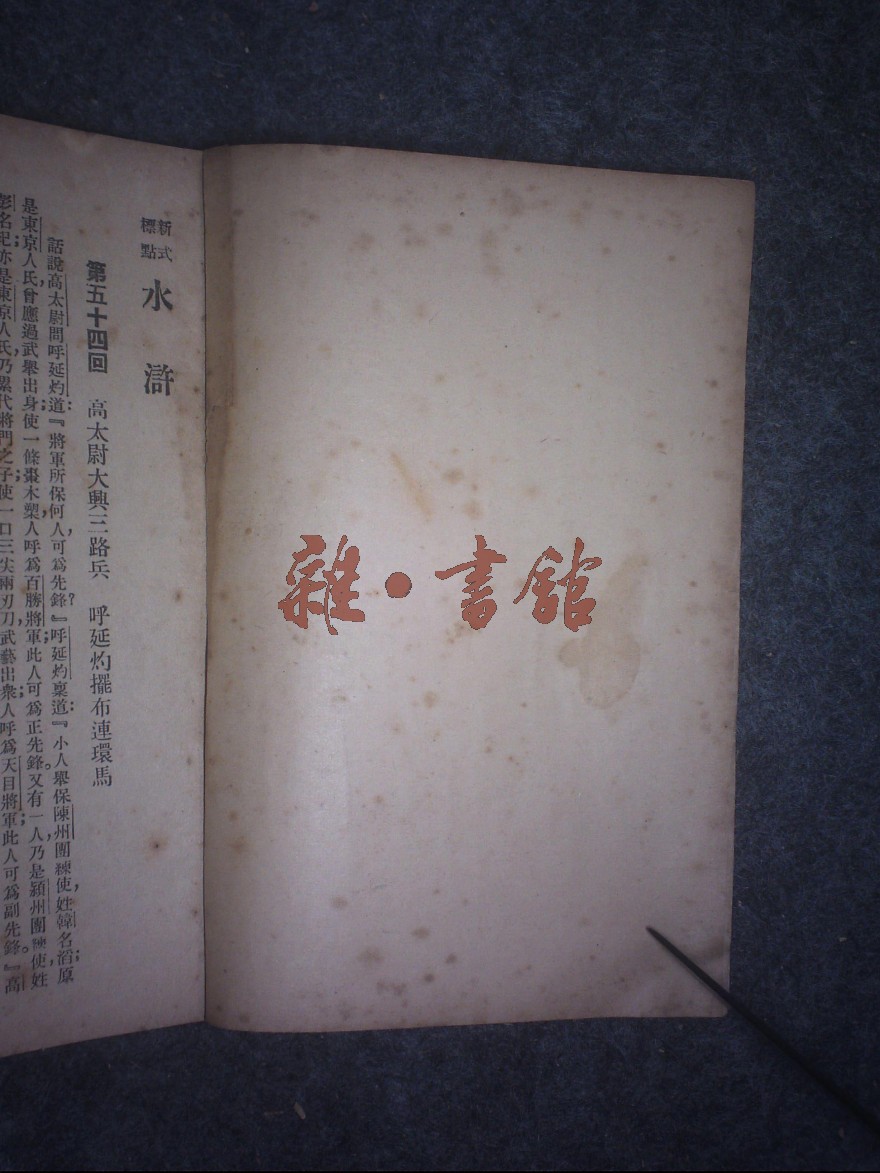 新式
標點
水滸
第五十四回　高太尉大興三路兵　呼延灼擺布連環馬
話說高太尉問呼延灼道：『將軍所保何人，可爲先鋒？』呼延灼稟道：『小人舉保陳州團練使，姓韓名滔，原
是東京人氏；曾應過武舉出身；使一條棗木槊；人呼爲百勝將軍；此人可爲正先鋒。又有一人，乃是潁州團練使，姓
彭名玘，亦是東京人氏；乃累代將門之子；使一口三尖兩刃刀，武藝出衆；人呼爲天目將軍；此人可爲副先鋒。』高
雜·書館